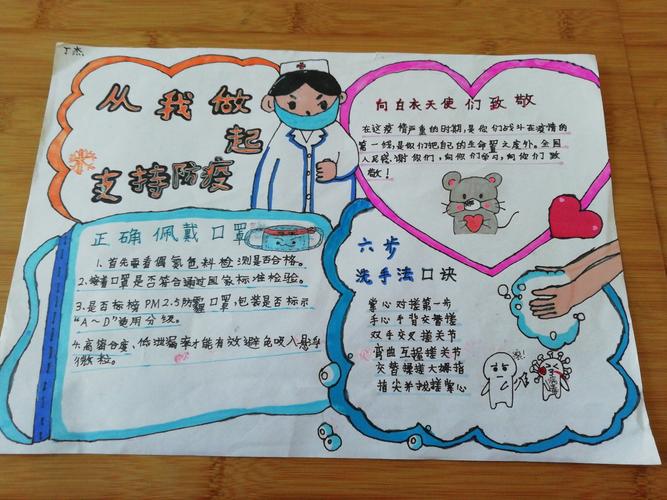 丁杰
从我做
起
支持防疫
向白衣天使们致敬
在这疫情严重的时期,是你们战斗在疫情的
第一线,是你们把自己的生命置之度外。全国
人民感谢你们,向你们学习,向你们致
敬!
正确佩戴口罩
1.首先要看偶氮色料检测是否合格。
2.接着口罩是否符合通过国家标准检验。
3.是否标榜PM2.5防霾口罩,包装是否标示
"A~D"适用分级。
4.高密合度、低泄漏率才能有效避免吸入悬浮
微粒。
六步
洗手法口诀
掌心对搓第一步
手心手背交替搓
双手交叉搓关节
弯曲互握搓关节
交替揉搓大拇指
指尖并拢搓掌心